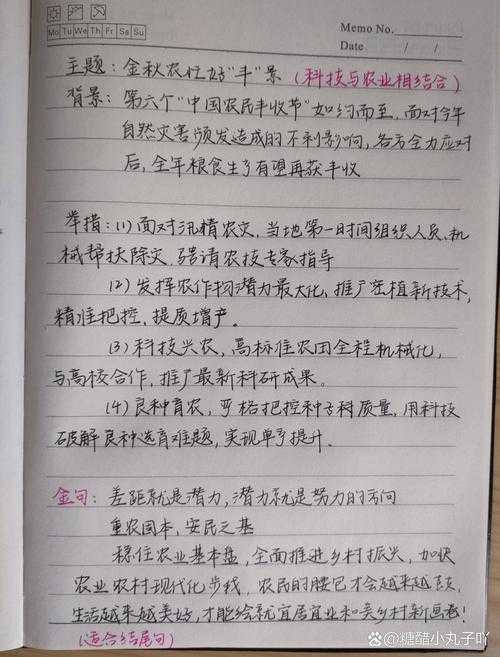 Memo No.
Mo Tu We Th Fr Sa Su
Date / /
主题：金秋农忙好"丰"景（科技与农业相结合）
背景：第六个"中国农民丰收节"如约而至，面对今年
自然灾害频发造成的不利影响，各方全力应对
后，全年粮食生产有望再获丰收
举措：(1) 面对汛情农灾，当地第一时间组织人员、机
械帮扶除灾，邀请农技专家指导
(2) 发挥农作物潜力最大化，推广密植新技术，
精准把控，提质增产。
(3) 科技兴农，高标准农田全程机械化，
与高校合作，推广最新科研成果。
(4) 良种育农，严格把控种子科质量，用科技
破解良种选育难题，实现单产提升.
金句：差距就是潜力，潜力就是努力的方向
重农固本，安民之基
稳住农业基本盘，全面推进乡村振兴，加快
农业农村现代化步伐，农民的腰包才会越来越鼓，
生活越来越美好，才能绘就宜居宜业和美乡村新画卷！
（适合结尾句）
@糖醋小丸子吖